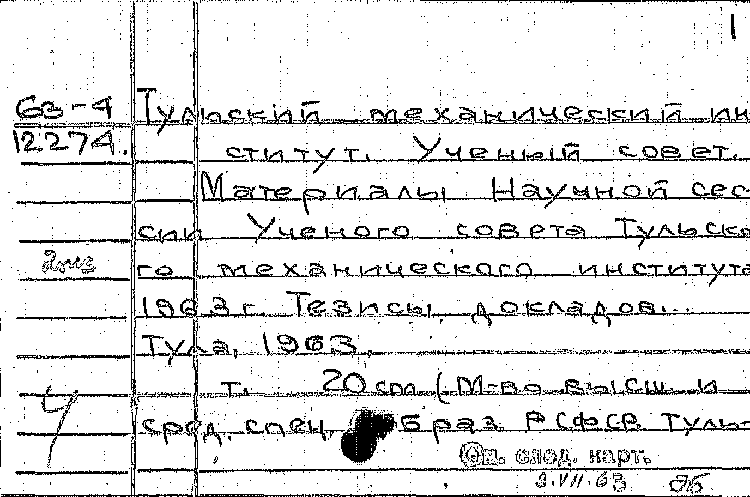 1
63-4 Тульский механический ин-
12274. ститут. Ученый совет.
Материалы Научной сес-
сии Ученого совета Тульско-
го механического института
1963 г. Тезисы докладов...
Тула, 1963.
т. 20 cm (М-во высш и
сред. спец. образ РСФСР Туль-
См. след. карт.
3.VII.63